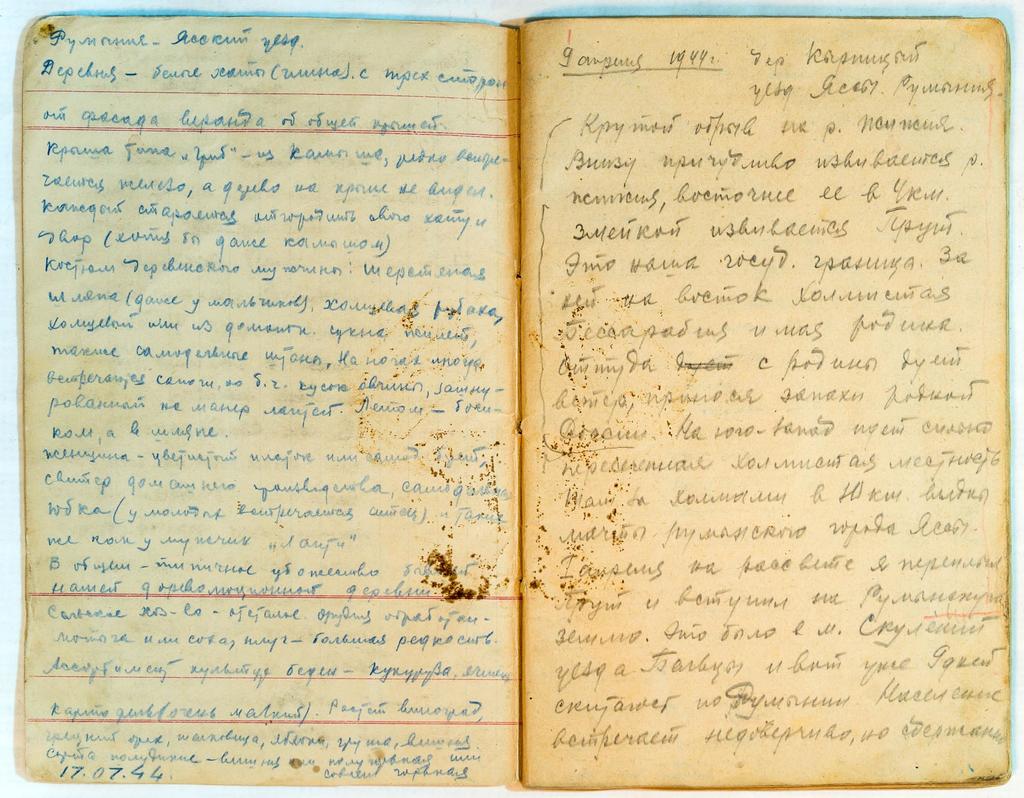 Румыния - Ясский уезд.
Деревня - белые хаты (глина). с трех сторон
от фасада веранда об общей крышей.
Крыша типа „гриб" - из камыша, редко встре-
чается железо, а дерево на крыше не видел.
Каждый старается отгородить свою хату и
двор (хотя бы даже камышом)
Костюм деревенского мужчины: шерстяная
шляпа (даже у мальчиков), холщевая рубаха,
холщевый или из домотк. сукна жилет,
такие самодельные штаны, На ногах иногда
встречаются сапоги, но б.ч. кусок овчины, зашну-
рованный на манер лаптей. Летом - боси-
ком, а в шляпе.
Женщина - цветистый платок или
свитер домашнего производства, самодельная
юбка (у молодых встречается ситец) и такие
же как у мужчин „Лапти"
В общем - типичное убожество бывшей
нашей дореволюционной деревни.
Сельское хоз-во - отсталое. орудия обработки -
мотыга или соха, плуг - большая редкость.
Ассортимент культур беден - кукуруза, ячмень
картофель (очень мелкий). Растет виноград,
грецкий орех, шелковица, яблоки, груша, вишня.
сорта полудикие - вишня или полудикая или
17.07.44. совсем горькая
9 апреля 1944г. дер Кырницый
уезд Яссы. Румыния.
Крутой обрыв на р. Жижия.
Внизу причудливо извивается р.
Жижия, восточнее ее в 4 км.
змейкой извивается Прут.
Это наша госуд. граница. За
ней на восток холмистая
Бессарабия и моя родина.
Оттуда дует с родины дует
ветер, принося запахи родной
России. На юго-запад идет сильно
пересеченная холмистая местность
Там за холмами в 10 км. видны
мачты румынского города Яссы.
1 апреля на рассвете я переплыл
Прут и вступил на Румынскую
землю. Это было в м. Скулений
уезда Бельцы и вот уже 9 дней
скитаюсь по Румынии Население
встречает недоверчиво, но сдержанно